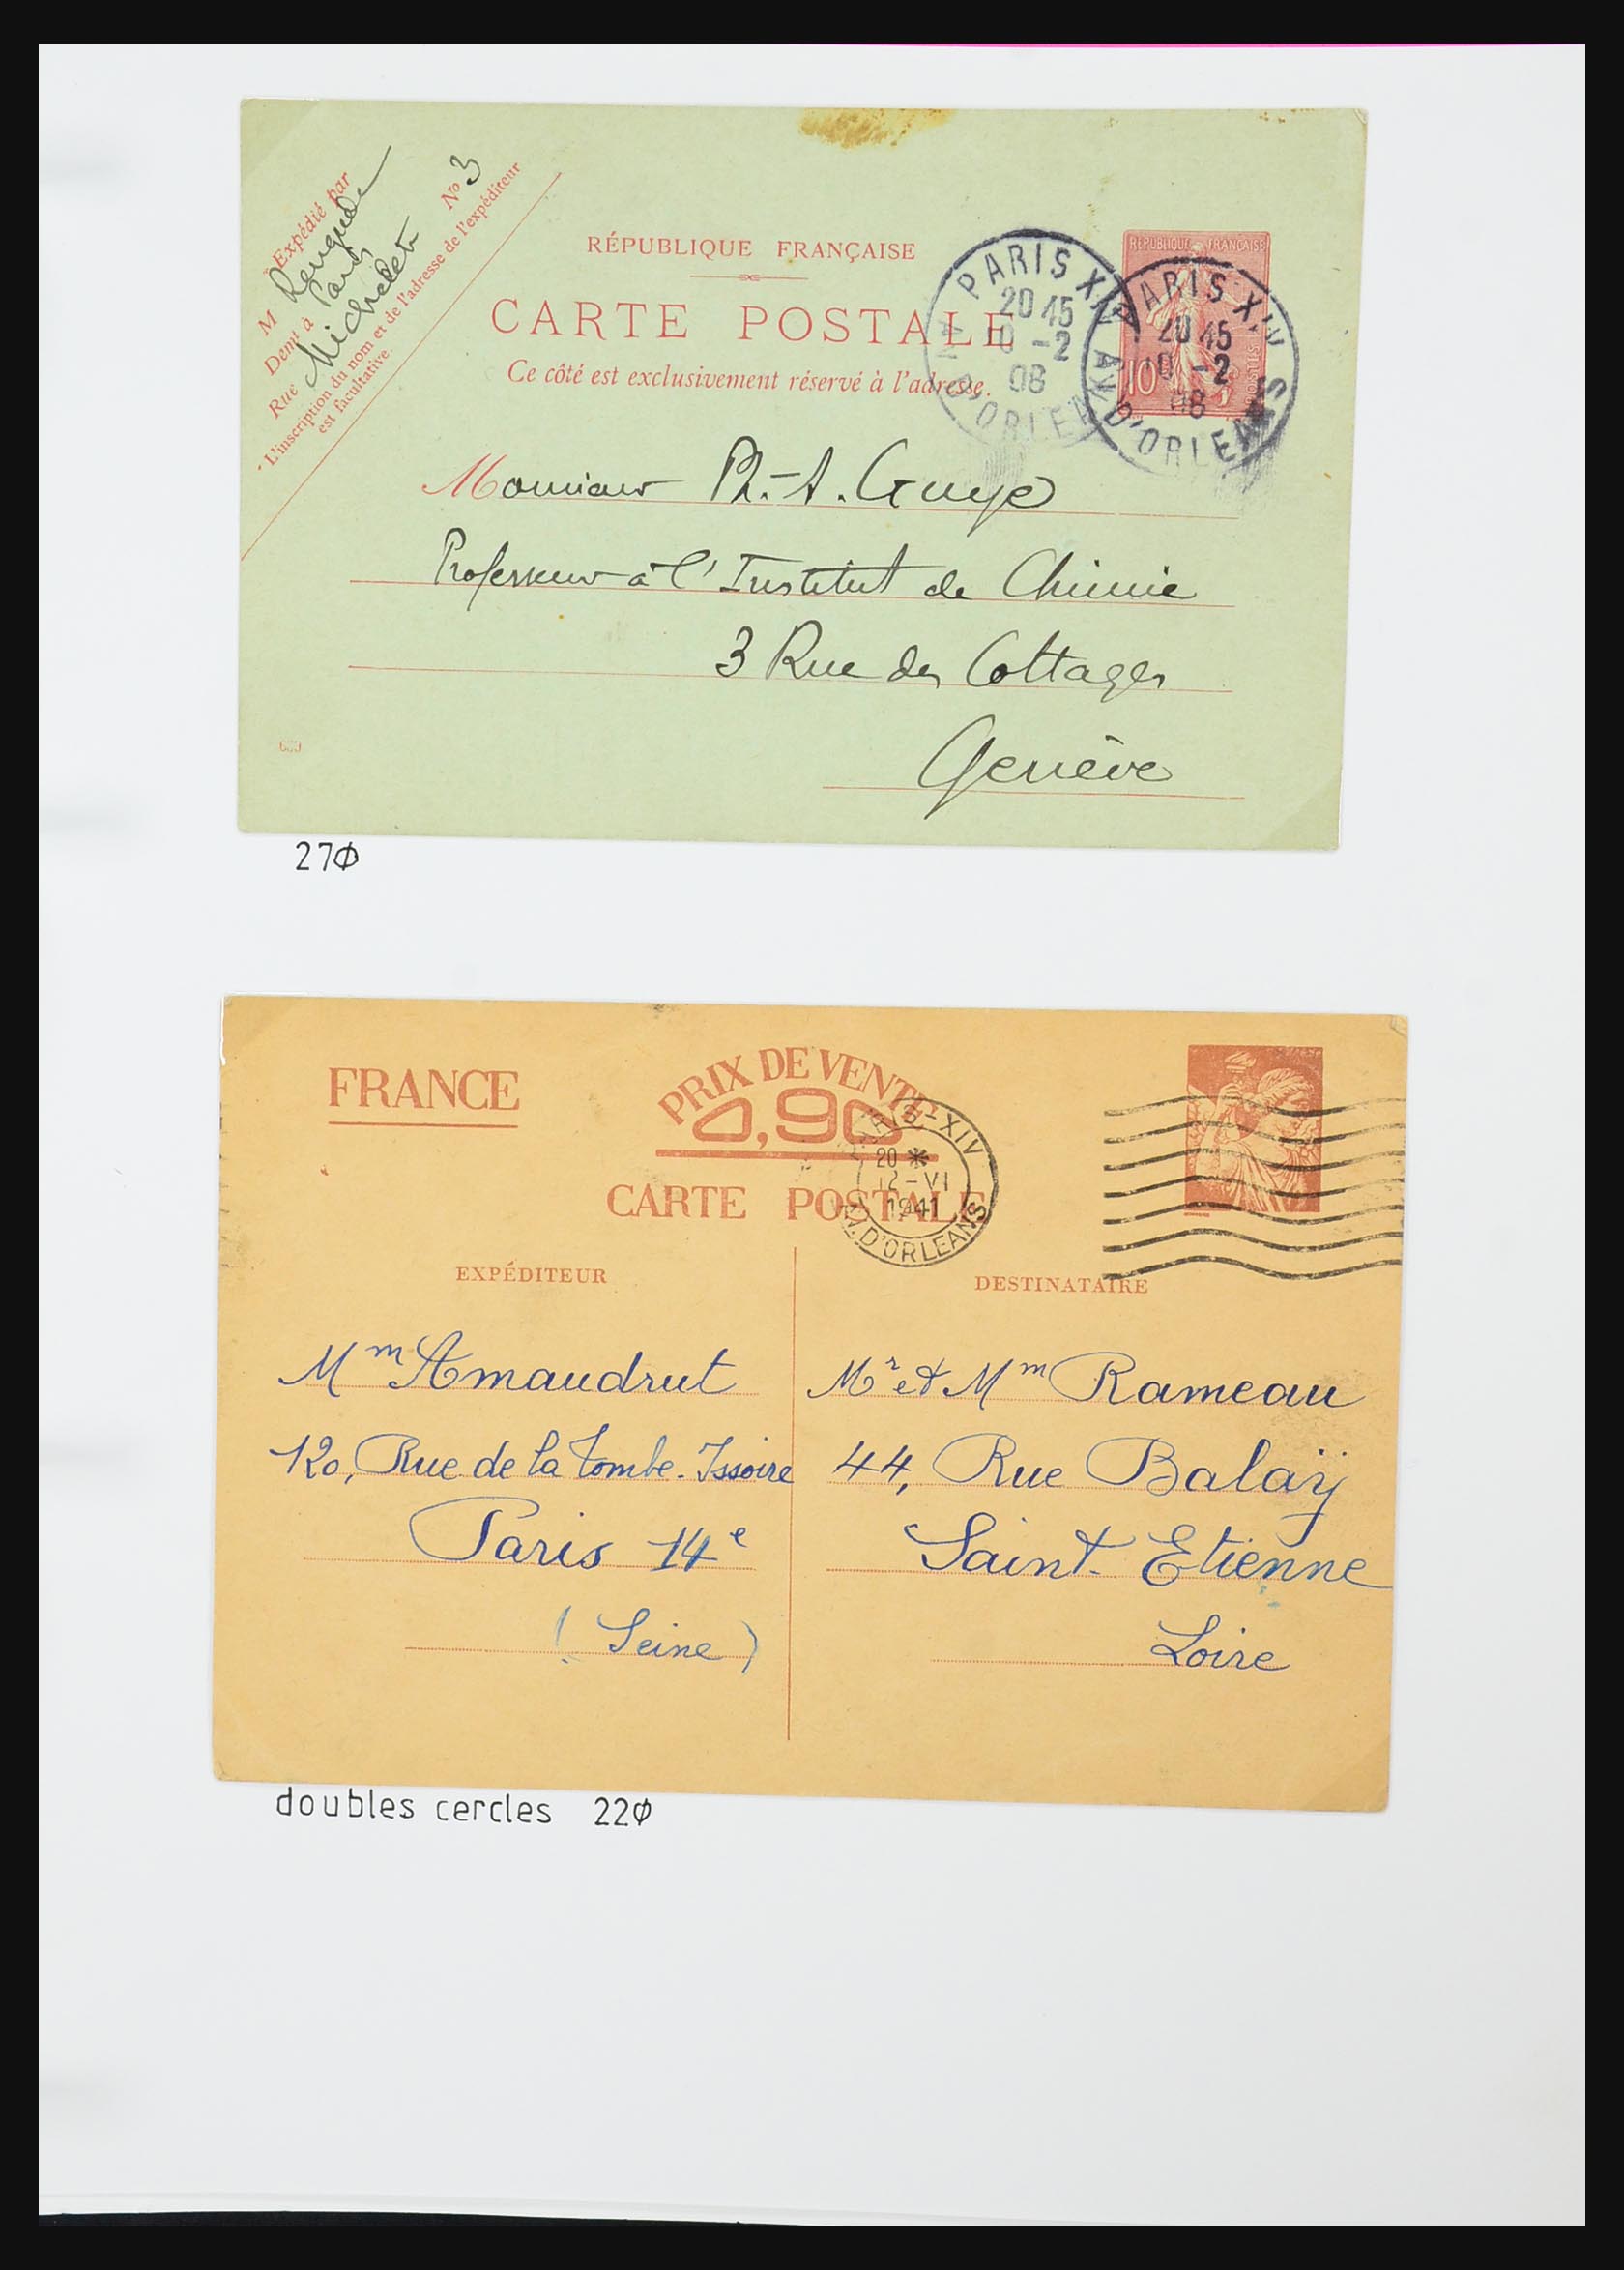 Expédié par
M
Demt à Paris
Rue Michelet No 3
L'inscription du nom et de l'adresse de l'expéditeur
est facultative.
RÉPUBLIQUE FRANÇAISE
CARTE POSTALE
Ce côté est exclusivement réservé à l'adresse.
RÉPUBLIQUE FRANÇAISE
10
POSTES
PARIS XIV
20 45
-2
08
AV. D'ORLEANS
PARIS XIV
20 45
10 -2
08
AV. D'ORLEANS
Monsieur Ph.-A. Guye
Professeur à l'Institut de Chimie
3 Rue des Cottages
Genève
27Ø
FRANCE
PRIX DE VENTE
0,90
CARTE POSTALE
PARIS-XIV
20 *
12-VI
1941
AV. D'ORLEANS
EXPÉDITEUR
DESTINATAIRE
Mm Amaudrut
120, Rue de la Tombe-Issoire
Paris 14e
(Seine)
Mr et Mm Rameau
44, Rue Balaÿ
Saint-Etienne
Loire
doubles cercles 22Ø